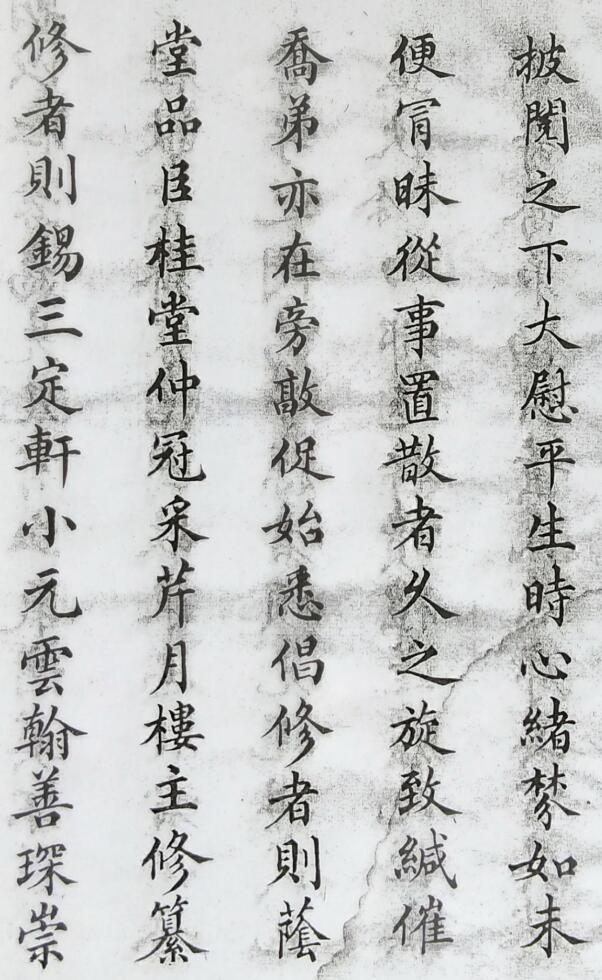 披閱之下大慰平生時心緒棼如未
便冐昧從事置散者久之旋致緘催
喬弟亦在旁敲促始悉倡修者則蔭
堂品臣桂堂仲冠采芹月樓主修纂
修者則錫三定軒小元雲翰善琛崇